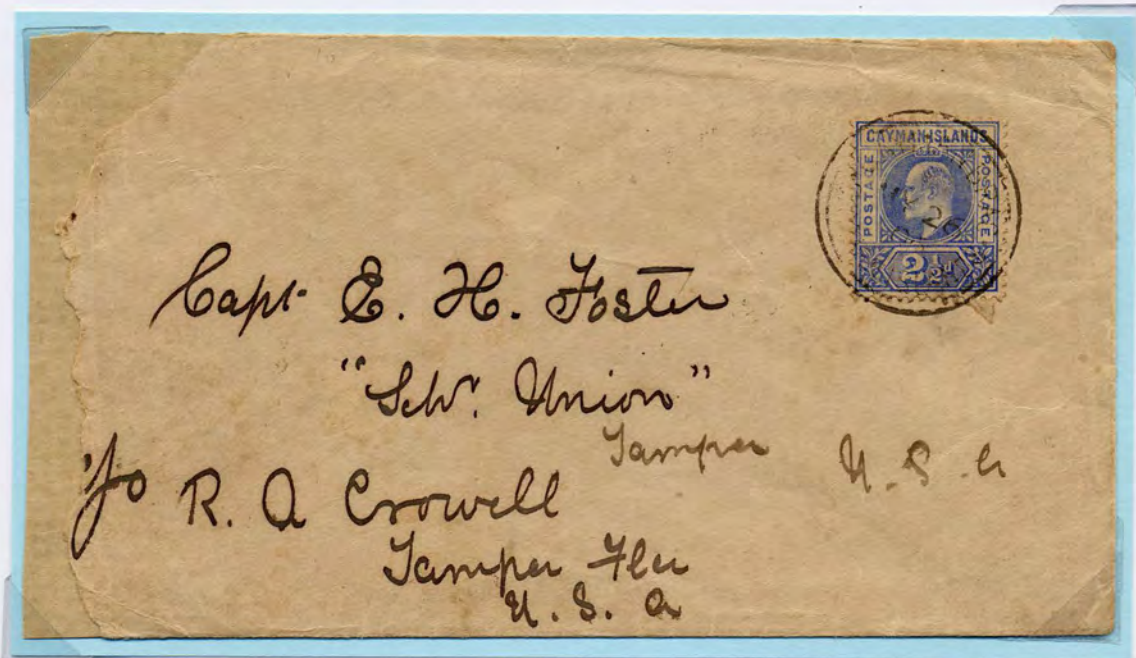 CAYMAN ISLANDS
POSTAGE POSTAGE
2½d
26
Capt. E. H. Foster
"Schr. Union"
Tampa U. S. A
R. A Crowell
Tampa Fla
U. S. A